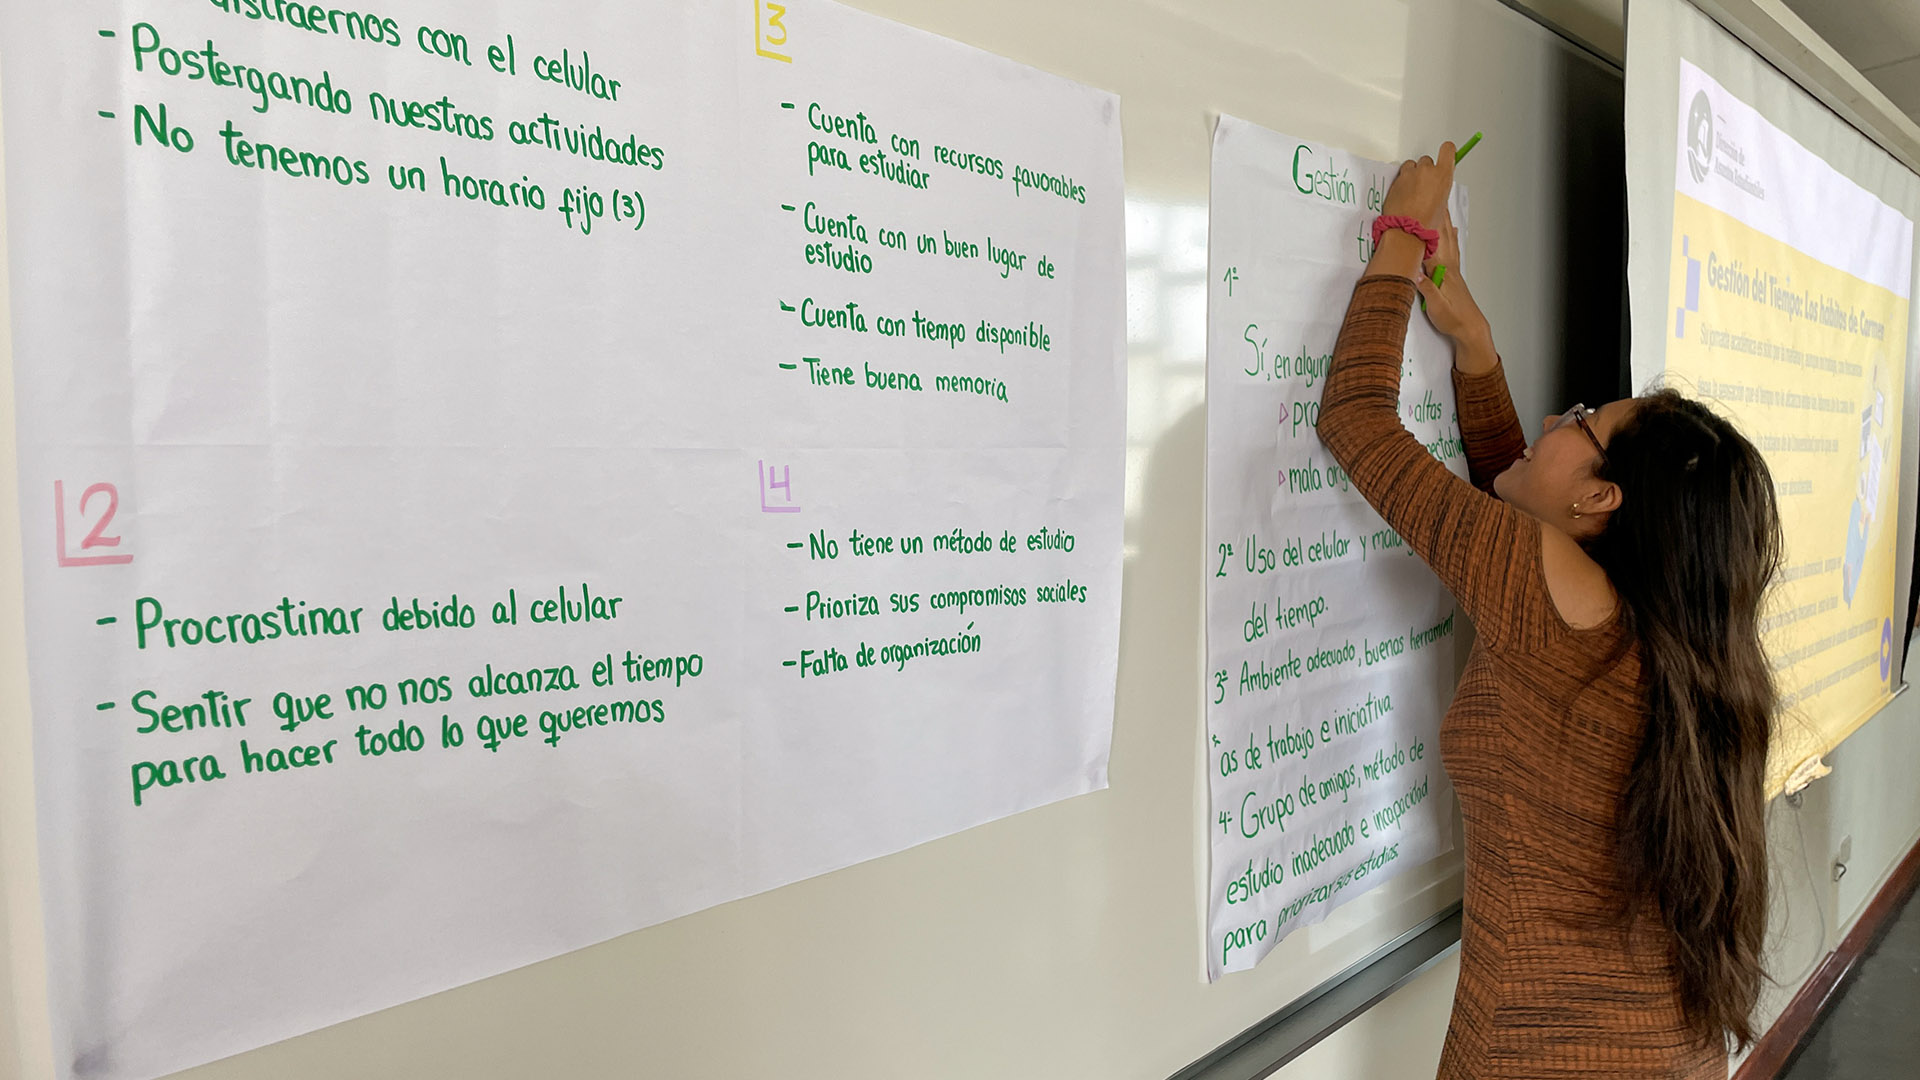 distraernos con el celular
- Postergando nuestras actividades
- No tenemos un horario fijo (3)
2
- Procrastinar debido al celular
- Sentir que no nos alcanza el tiempo
para hacer todo lo que queremos
3
- Cuenta con recursos favorables
para estudiar
- Cuenta con un buen lugar de
estudio
- Cuenta con tiempo disponible
- Tiene buena memoria
4
- No tiene un método de estudio
- Prioriza sus compromisos sociales
- Falta de organización
Gestión del
1º
Sí, en algun
altas
mala
2º Uso del celular y mala
del tiempo.
3º Ambiente adecuado, buenas herramient
as de trabajo e iniciativa.
4º Grupo de amigos, método de
estudio inadecuado e incapacidad
para priorizar sus estudios.
Dirección de
Gestión del Tiempo: Los hábitos de Carmen